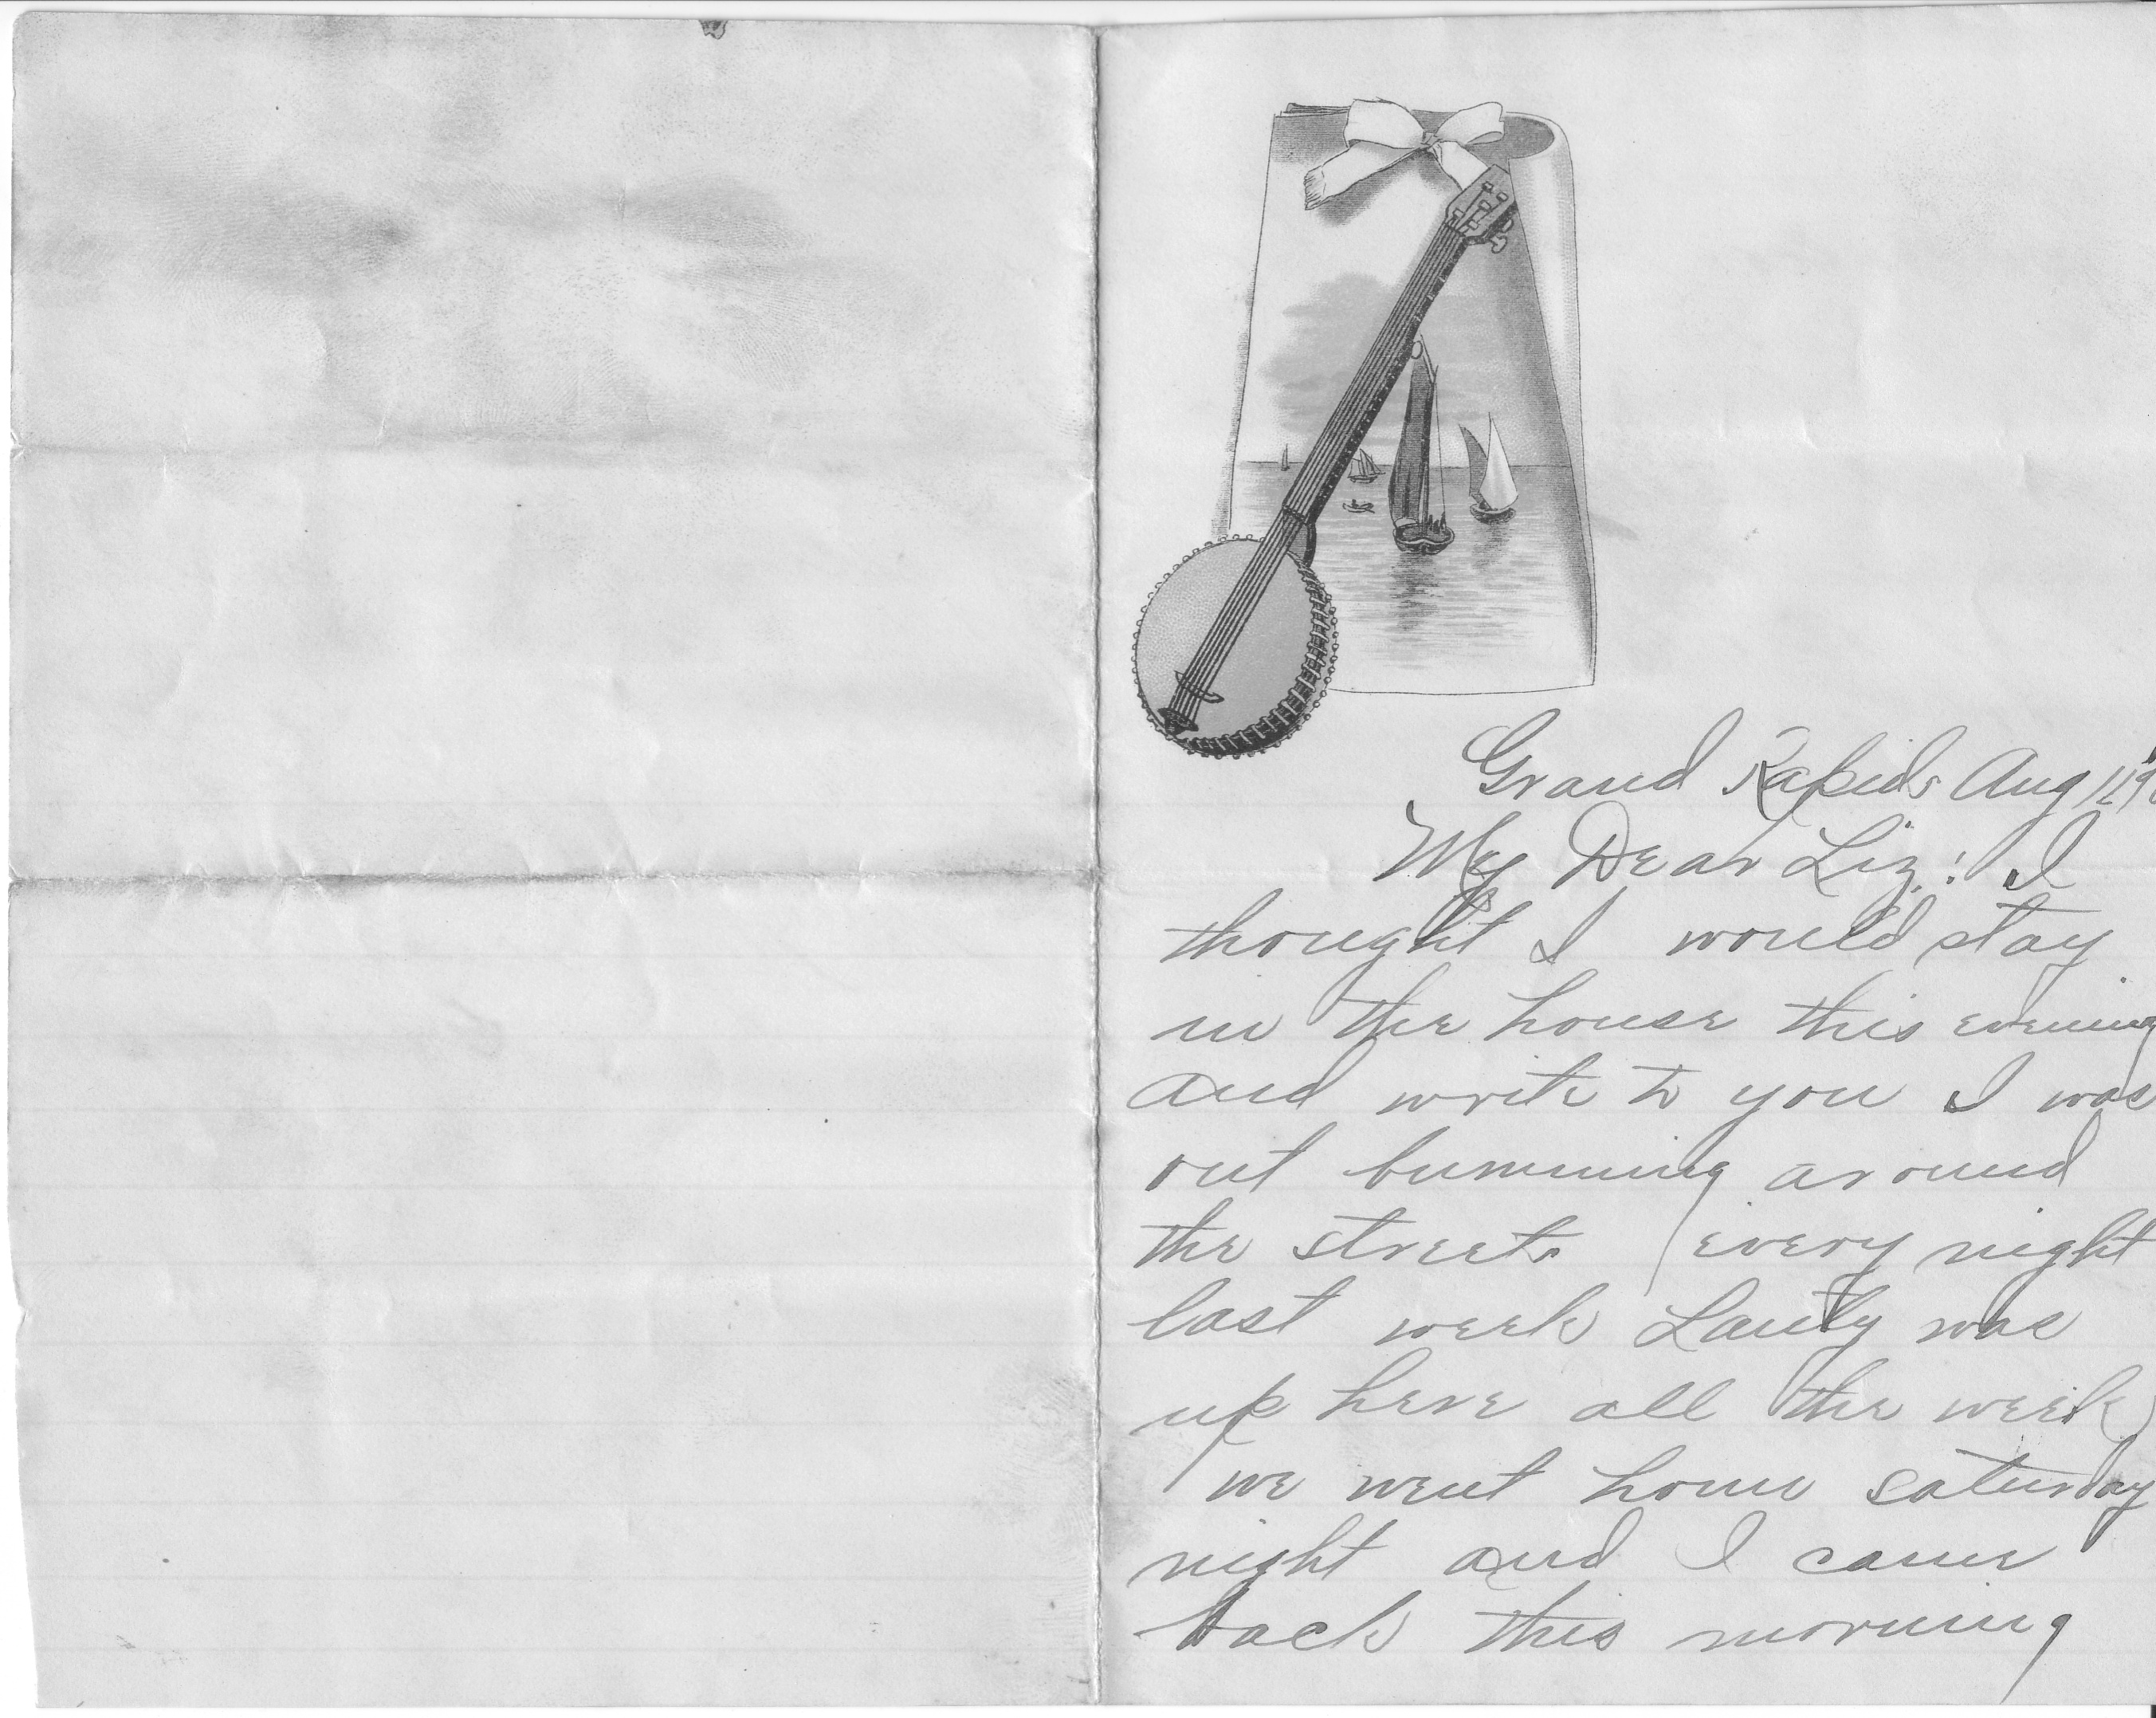 Grand Rapids Aug 11
My Dear Liz: I
thought I would stay
in the house this evening
and write to you I was
out bumming around
the streets every night
last week was
up here all the week
we went home saturday
night and I came
back this morning